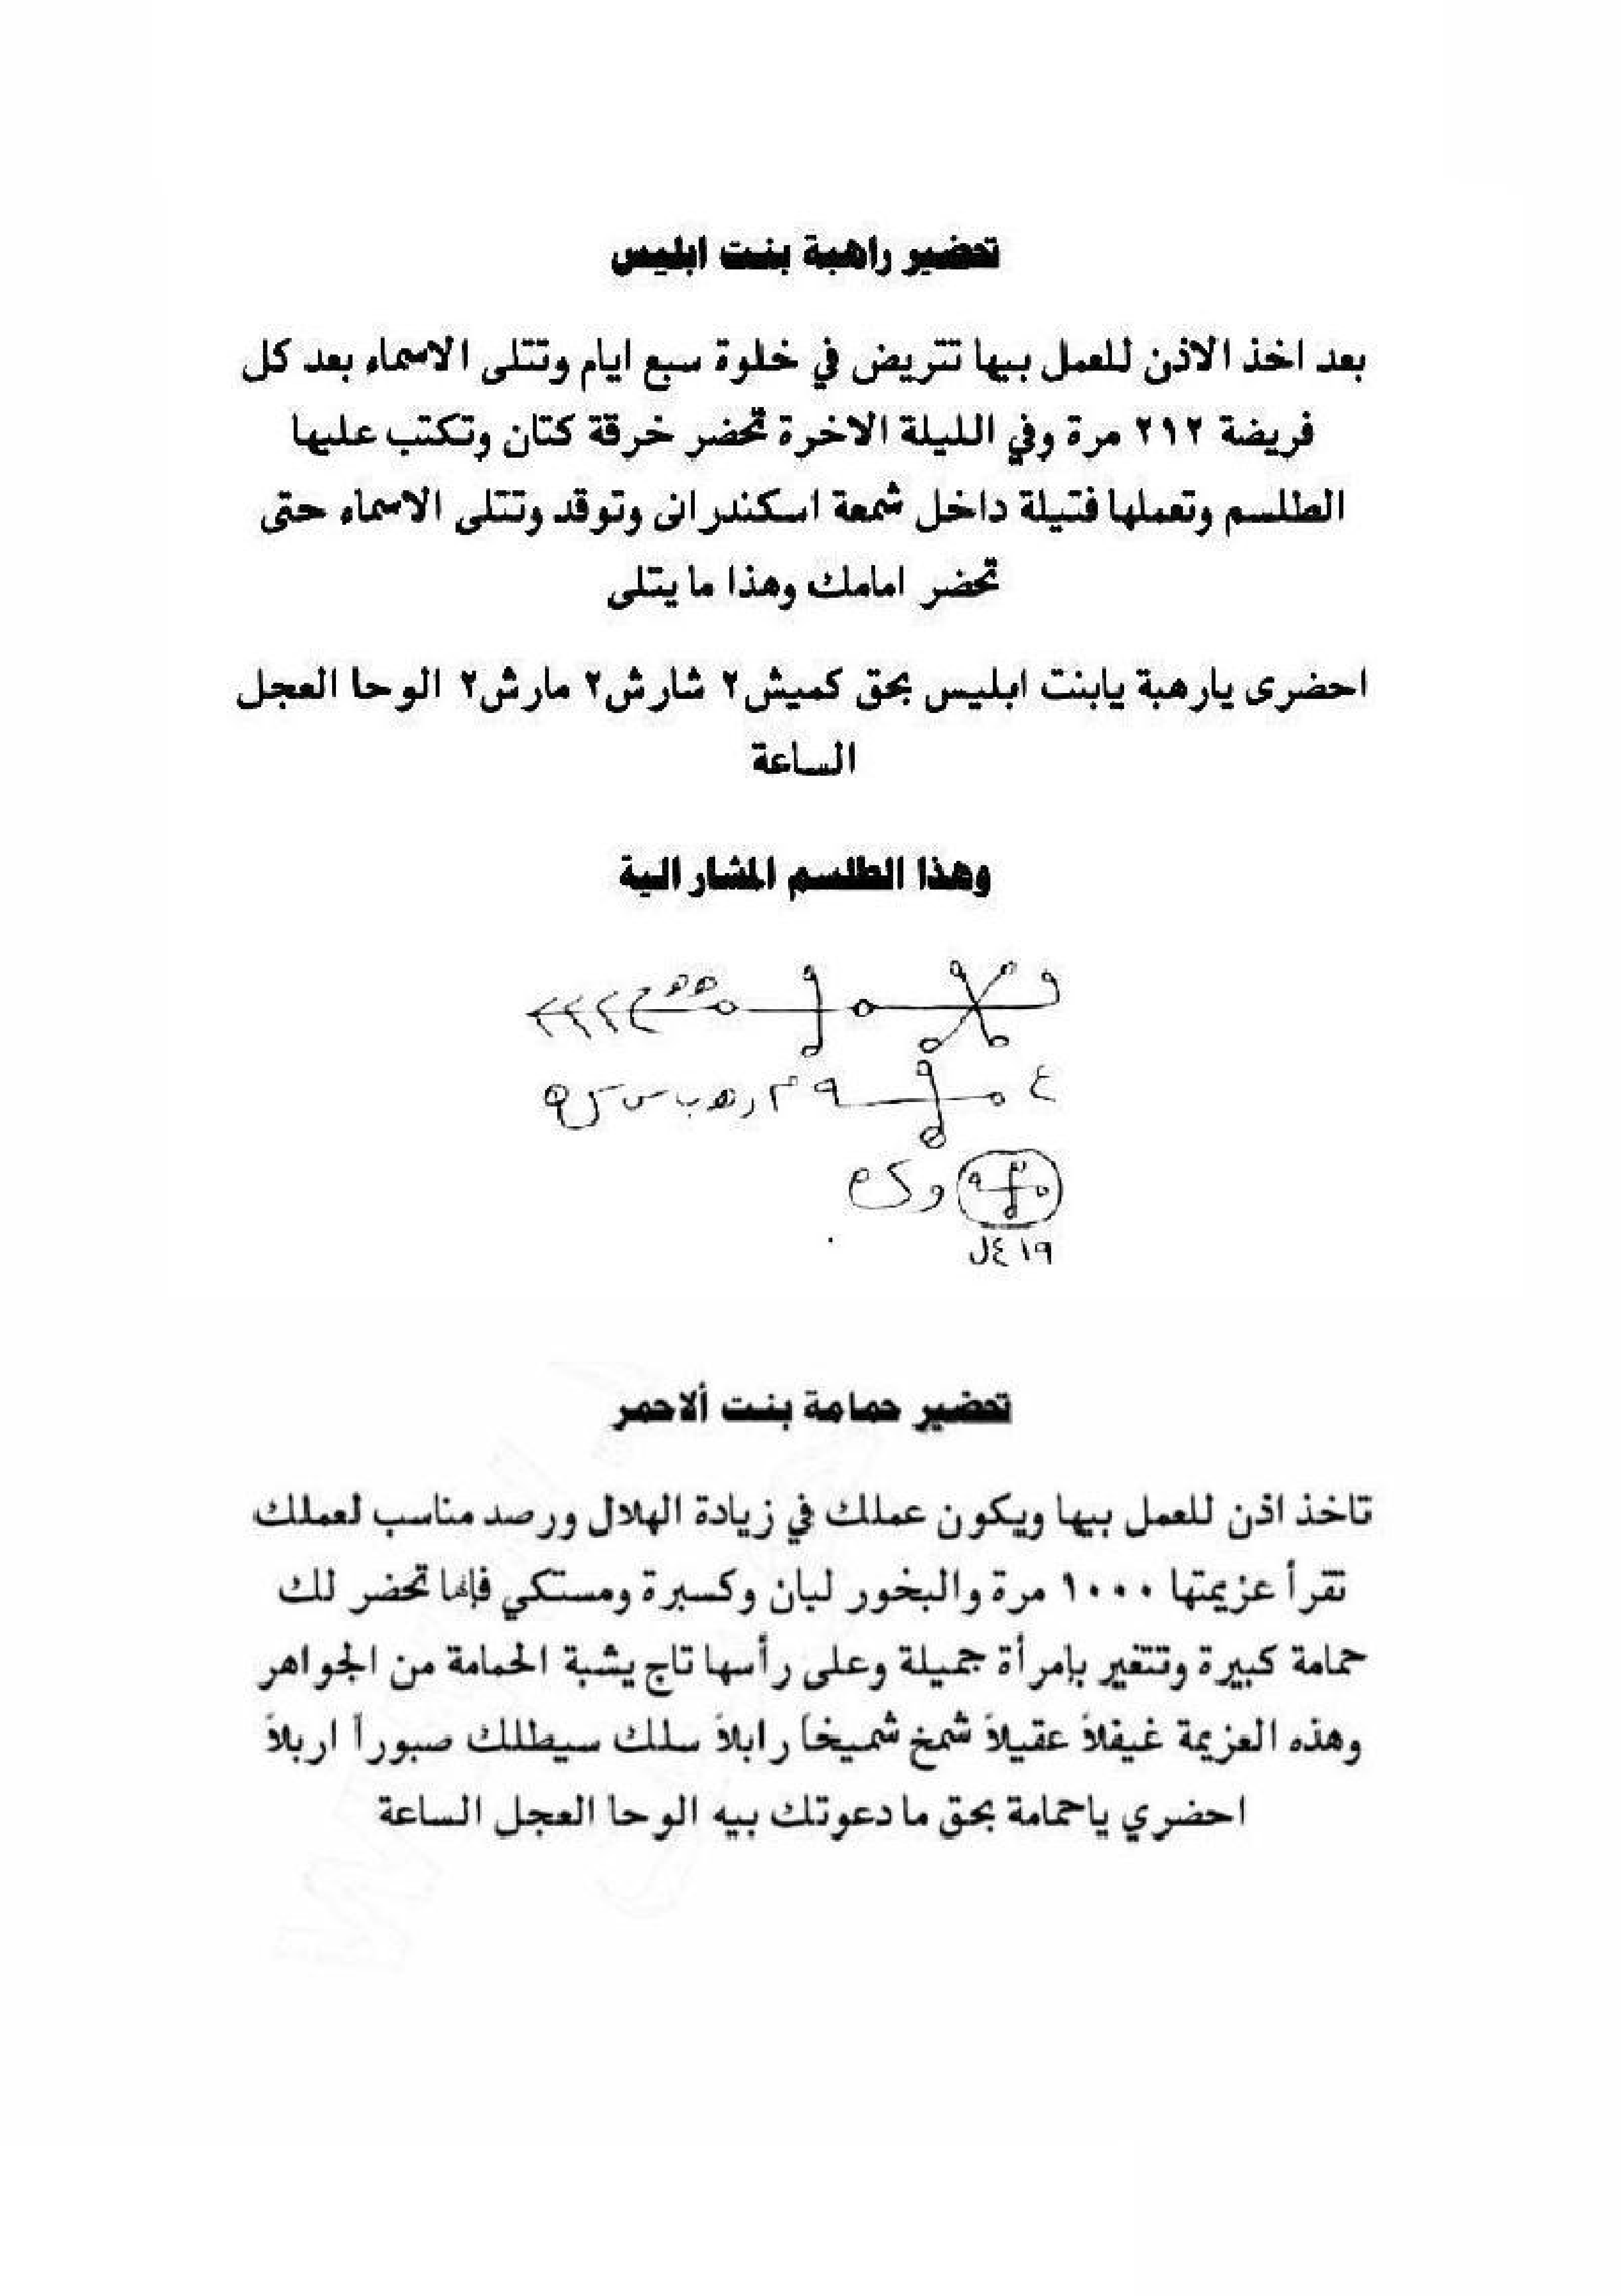 تحضير راهبة بنت ابليس
بعد اخذ الاذن للعمل بيها تتريض في خلوة سبع ايام وتتلى الاسماء بعد كل
فريضة ٢١٢ مرة وفي الليلة الاخرة تحضر خرقة كتان وتكتب عليها
الطلسم وتعملها فتيلة داخل شمعة اسكندرانى وتوقد وتتلى الاسماء حتى
تحضر امامك وهذا ما يتلى
احضرى يارهبة يابنت ابليس بحق كميش٢ شارش٢ مارش٢ الوحا العجل
الساعة
وهذا الطلسم المشار الية
تحضير حمامة بنت ألاحمر
تاخذ اذن للعمل بيها ويكون عملك في زيادة الهلال ورصد مناسب لعملك
تقرأ عزيمتها ١٠٠٠ مرة والبخور لبان وكسبرة ومستكي فإنها تحضر لك
حمامة كبيرة وتتغير بإمرأة جميلة وعلى رأسها تاج يشبة الحمامة من الجواهر
وهذه العزيمة غيفلاً عقيلاً شمخ شميخاً رابلاً سلك سيطلك صبوراً اربلاً
احضري ياحمامة بحق ما دعوتك بيه الوحا العجل الساعة